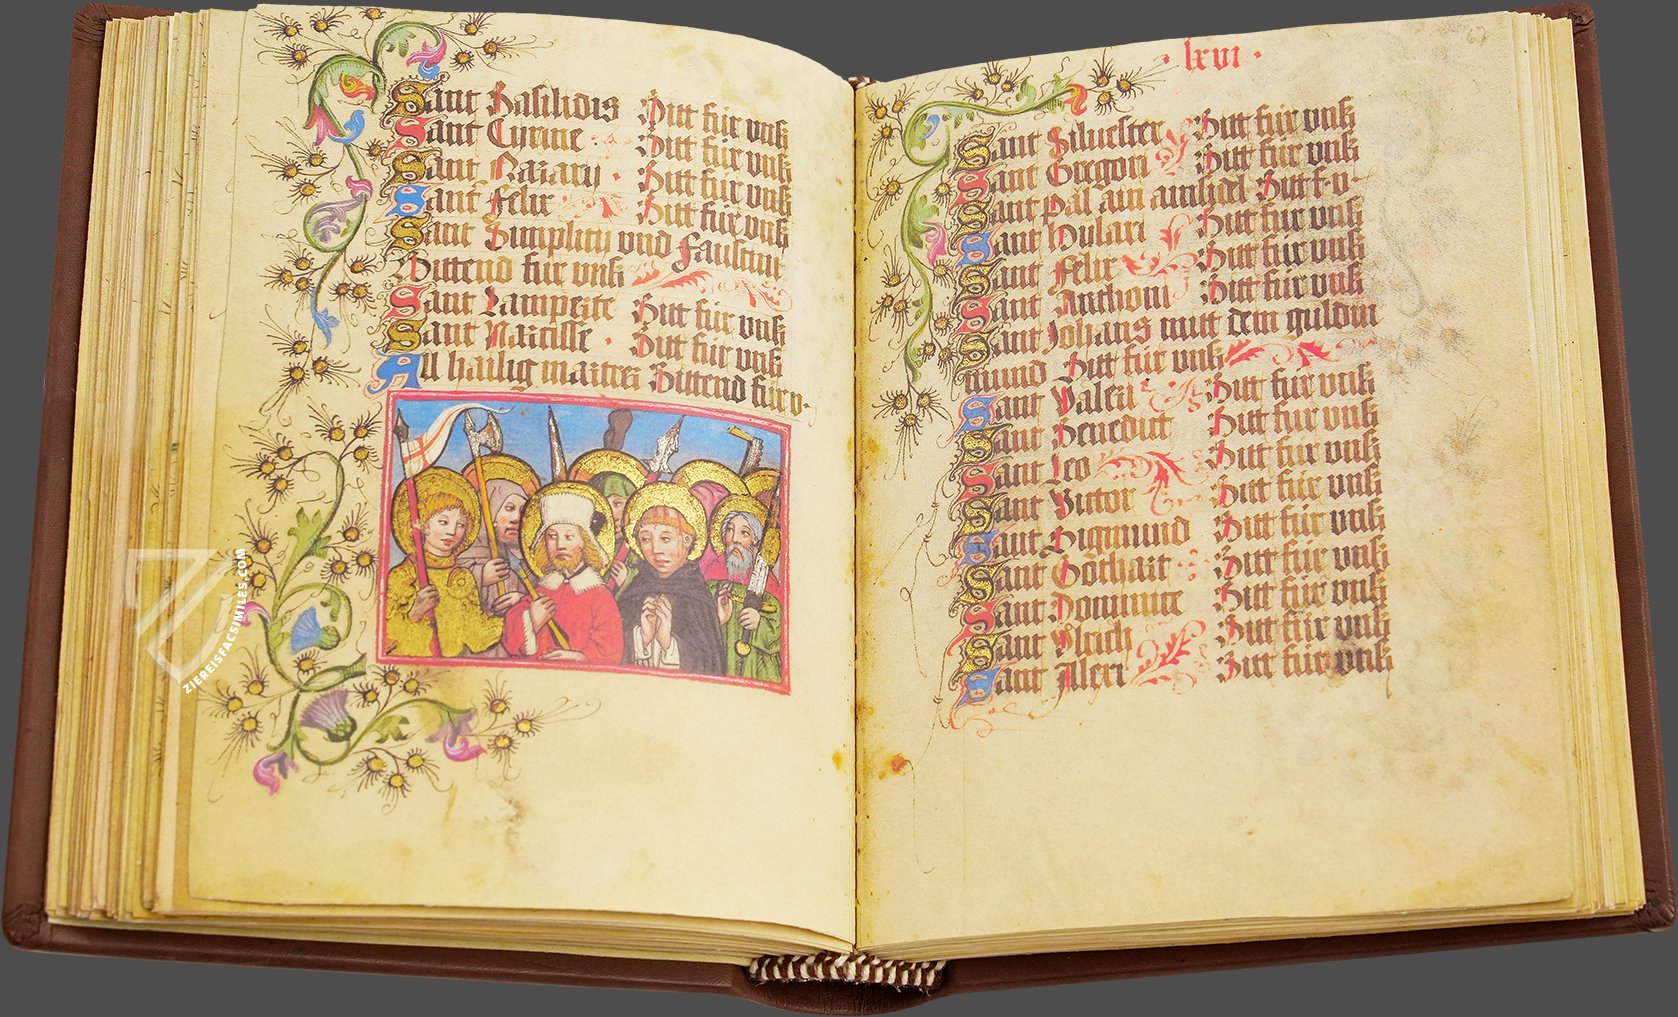 Sant Basilidis Bitt für vnß
Sant Cyrine Bitt für vnß
Sant Nazary Bitt für vnß
Sant Felix Bitt für vnß
Sant Simplity vnd Faustini
Bittend für vnß
Sant Lamperte Bitt für vnß
Sant Narcisse Bitt für vnß
All hailig martrer Bittend für v.
· lxvi ·
67
Sant Siluester Bitt für vnß
Sant Gregori Bitt für vnß
Sant Pal ain ainsidel Bitt f. v.
Sant Hylari Bitt für vnß
Sant Felix Bitt für vnß
Sant Anthoni Bitt für vnß
Sant Johans mitt dem guldin
mund Bitt für vnß
Sant Valeri Bitt für vnß
Sant Benedict Bitt für vnß
Sant Leo Bitt für vnß
Sant Victor Bitt für vnß
Sant Sigmund Bitt für vnß
Sant Gothart Bitt für vnß
Sant Dominice Bitt für vnß
Sant Vlrich Bitt für vnß
Sant Allexi Bitt für vnß
ZIEREISFACSIMILES.COM